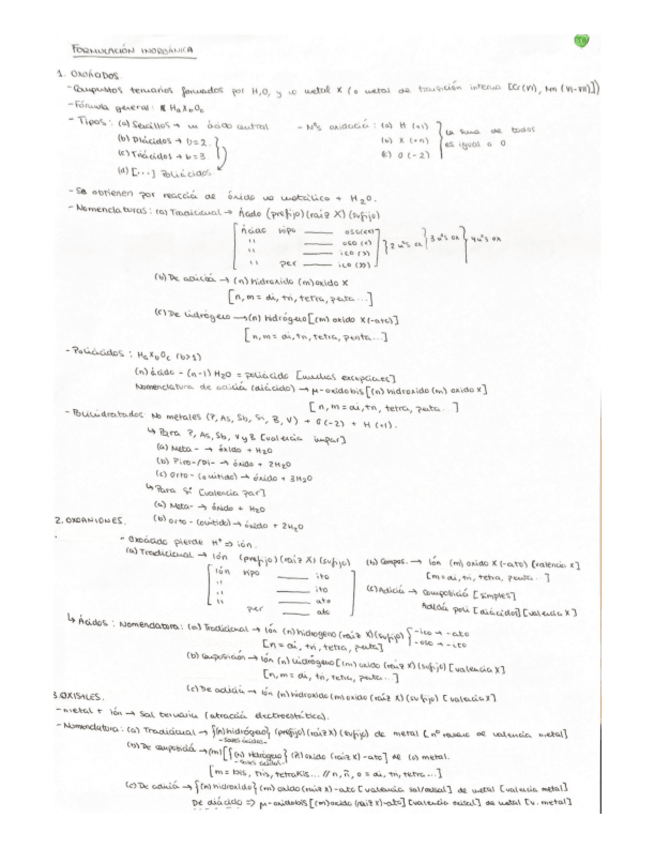 FORMULACIÓN INORGÁNICA
1. OXOÁCIDOS.
- Compuestos ternarios formados por H, O, y no metal X (o metal de transición interna [Cr(VI), Mn (VI-VII)])
- Fórmula general: HaXbOc
- Tipos: (a) Sencillos → un ácido central - Nºs oxidación: (a) H (+1) la suma de todos
(b) Diácidos → b=2. (b) X (+n) es igual a 0
(c) Triácidos → b=3 (c) O (-2)
(d) [...] Poliácidos
- Se obtienen por reacción de óxido no metálico + H2O.
- Nomenclaturas: (a) Tradicional → Ácido (prefijo)(raíz X)(sufijo)
Ácido hipo ___ oso
" ___ oso 2 nºs ox 3 nºs ox 4 nºs ox
" ___ ico
" per ___ ico
(b) De adición → (n) hidroxido (m) oxido X
[n, m = di, tri, tetra, penta...]
(c) De hidrógeno → (n) hidrógeno [(m) oxido X(-ato)]
[n, m = di, tri, tetra, penta...]
- Poliácidos: HaXbOc (b>1)
(n) ácido - (n-1) H2O = poliácido [muchas excepciones]
Nomenclatura de adición (diácido) → μ-oxidobis [(n) hidroxido (m) oxido X]
[n, m = di, tri, tetra, penta...]
- Polihidratados No metales (P, As, Sb, Si, B, V) + O(-2) + H(+1).
↳ Para P, As, Sb, V y B [valencia impar]
(a) Meta- → óxido + H2O
(b) Piro-/Di- → óxido + 2H2O
(c) Orto- (omitido) → óxido + 3H2O
↳ Para Si [valencia par]
(a) Meta- → óxido + H2O
(b) Orto- (omitido) → óxido + 2H2O
2. OXOANIONES.
- Oxoácido pierde H+ => ión.
(a) Tradicional → Ión (prefijo)(raíz X)(sufijo) (b) Compos. → Ión (m) oxido X (-ato) [valencia X]
Ión hipo ___ ito [m = di, tri, tetra, penta...]
" ___ ito (c) Adición → composición [simples]
" ___ ato Adición poli [diácidos] [valencia X]
per ___ ato
↳ Ácidos: Nomenclatura: (a) Tradicional → Ión (n) hidrogeno (raíz X)(sufijo) -ico → -ato
[n = di, tri, tetra, penta] -oso → -ito
(b) Composición → Ión (n) hidrógeno [(m) oxido (raíz X)(sufijo)] [valencia X]
[n, m = di, tri, tetra, penta...]
(c) De adición → Ión (n) hidroxido (m) oxido (raíz X)(sufijo) [valencia X]
3. OXISALES.
- metal + ión → Sal ternaria (atracción electroestática).
- Nomenclatura: (a) Tradicional → {(n) hidrógeno} (prefijo)(raíz X)(sufijo) de metal [nº romano de valencia metal]
- Sales ácidas -
(b) De composición → (m) [{(n) hidrógeno} (ñ) oxido (raíz X)-ato] de (o) metal.
- Sales ácidas -
[m = bis, tris, tetrakis... // n, ñ, o = di, tri, tetra...]
(c) De adición → {(n) hidroxido} (m) oxido (raíz X)-ato [valencia sal/oxisal] de metal [valencia metal]
De diácido => μ-oxidobis [(m) oxido (raíz X)-ato] [valencia oxisal] de metal [v. metal]